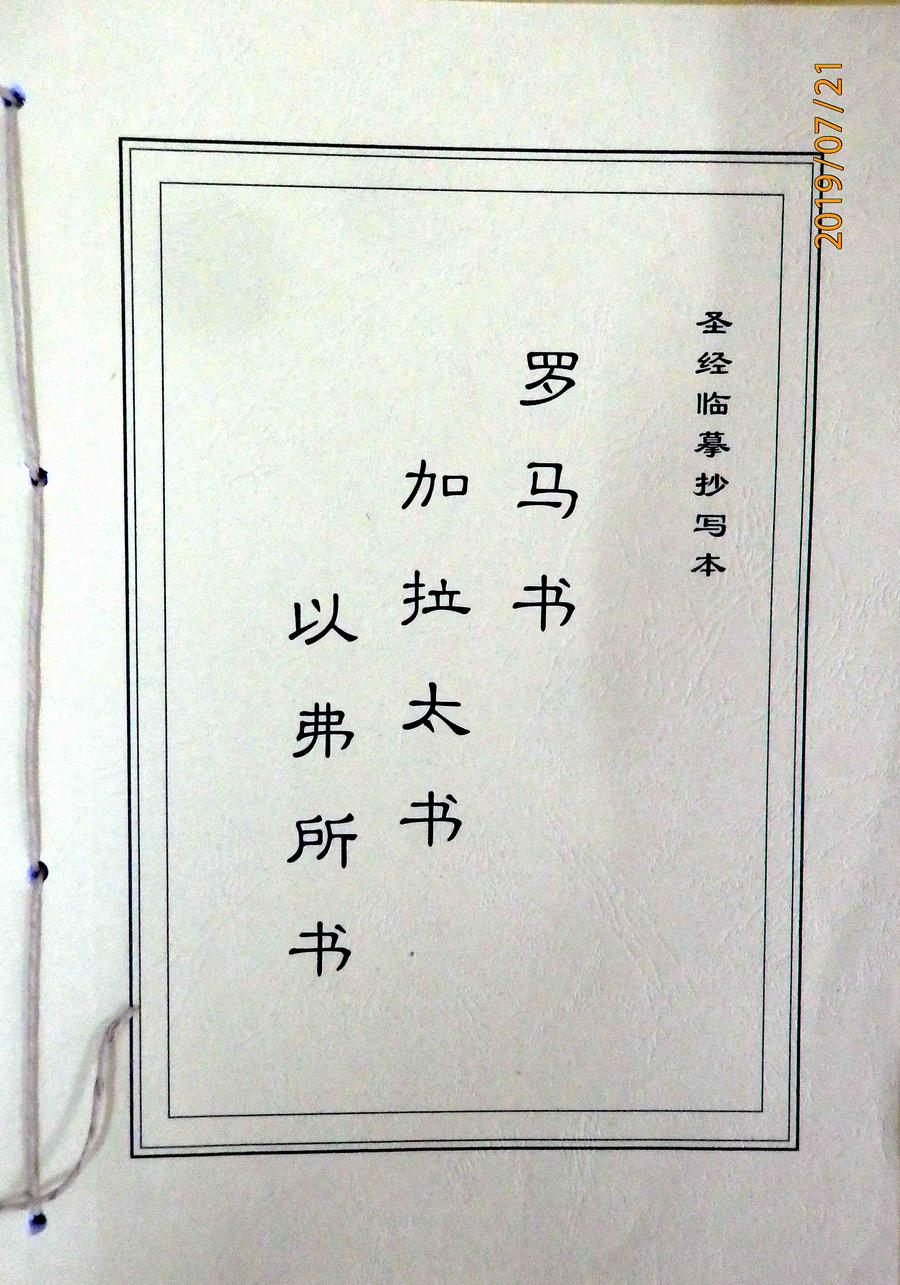 圣经临摹抄写本
罗马书
加拉太书
以弗所书
2019/07/21